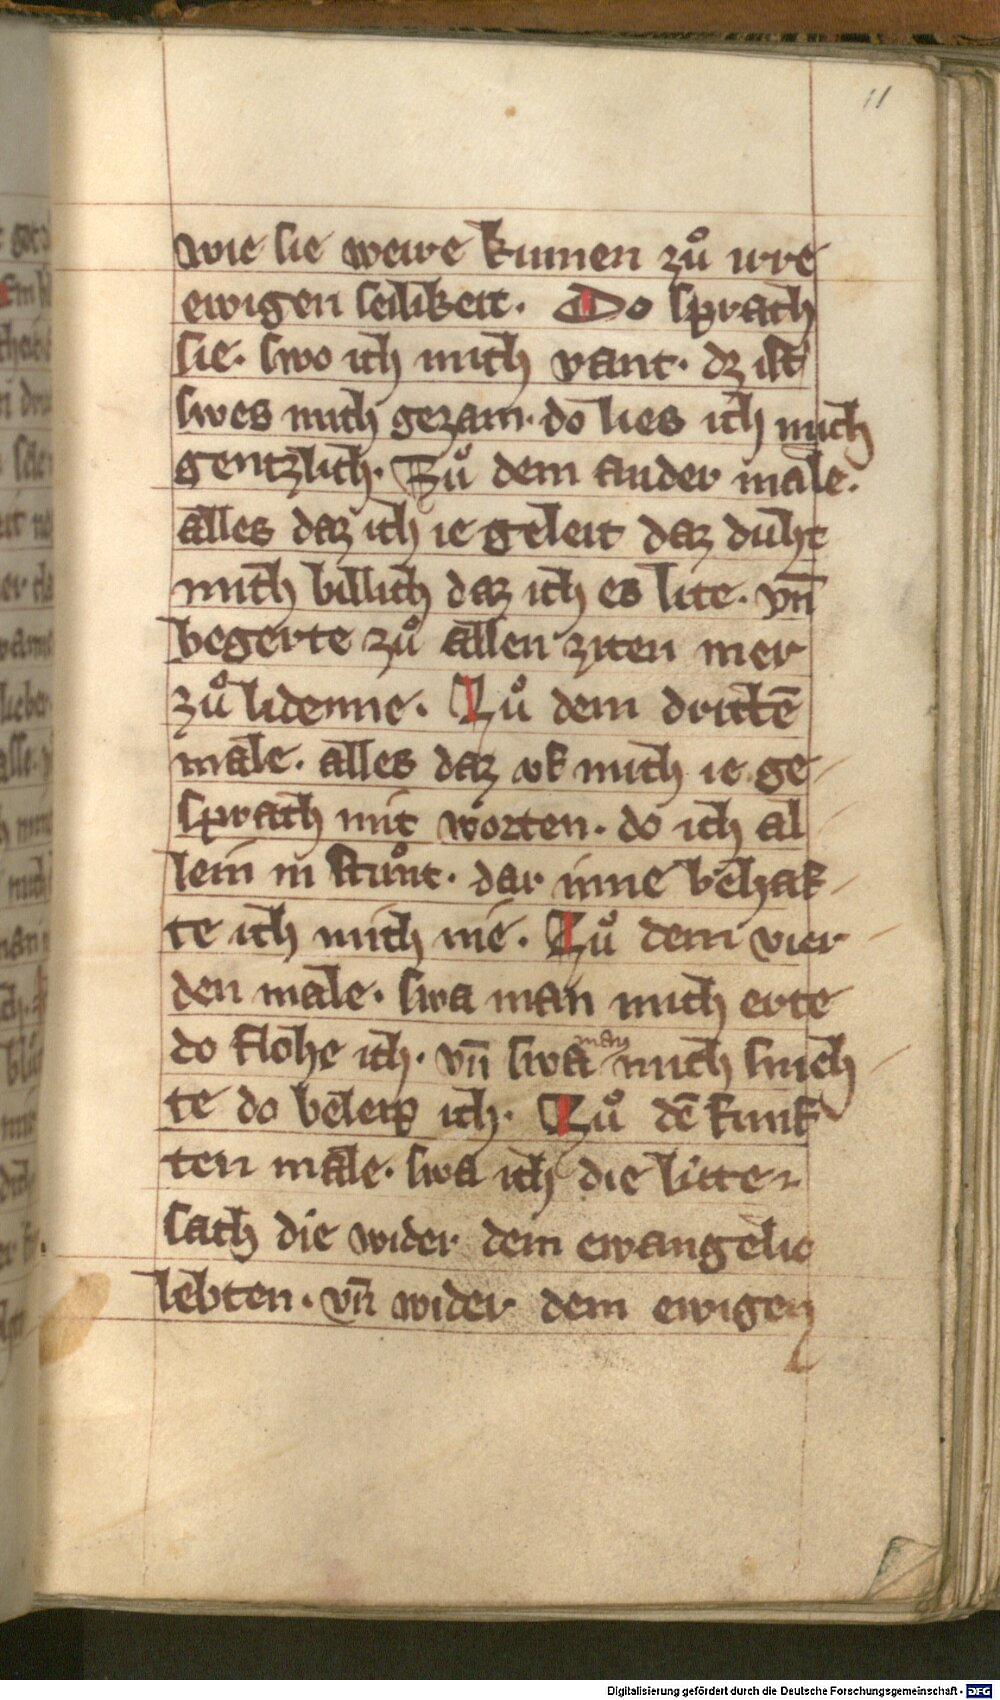 11
wie sie weire kumen zuͦ irre
ewigen selikeit. Do sprach
sie. swo ich mich vant. dz ist
swes mich gezam. do lies ich mich
gentzlich. Zuͦ dem ander male.
alles daz ich ie geleit daz duht
mich billich daz ich es lite. vn̄
begerte zuͦ allen ziten mer
zuͦ lidenne. Zuͦ dem drittē
male. alles daz vf mich ie ge
sprach mit worten. do ich al
lein in stuͦnt. dar inne
te ich mich nie. Zuͦ dem vier
den male. swa man mich erte
do flohe ich. vn̄ swa man mich smeh
te do beleip ich. Zuͦ dē funf
ten male. swa ich die lúte
sach die wider dem ewangelio
lebten. vn̄ wider dem ewigen
Digitalisierung gefördert durch die Deutsche Forschungsgemeinschaft - DFG